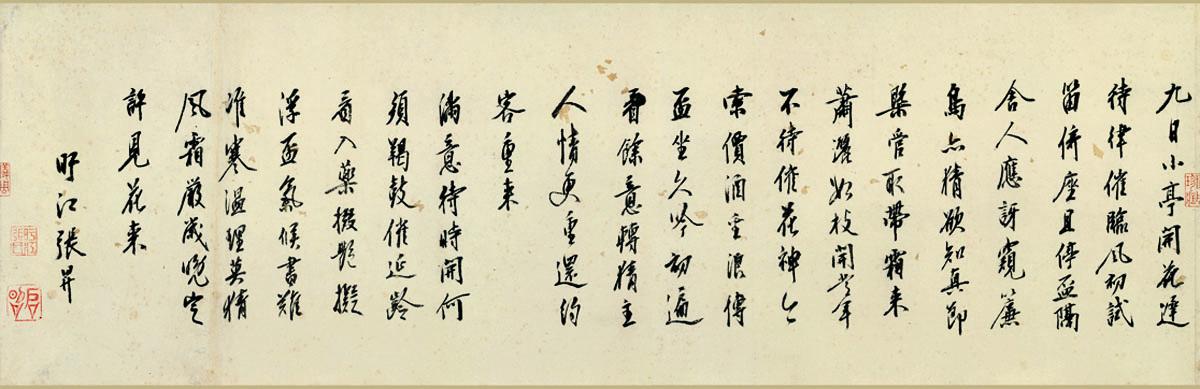 九日小亭開花遲
待律催臨風初試
笛倚座且停盃隔
舍人應訝窺簾
鳥亦猜欲知真節
槩管取帶霜来
蕭灑數枝開當年
不待催花神今
索價酒聖浪傳
盃坐久吟初遍
看餘意轉猜主
人情更重還約
客重来
滿意待時開何
須羯鼓催延齡
看入藥掇艷擬
浮盃氣候書難
准寒温理莫猜
風霜嚴歲晚定
許見花来
旴江張昇